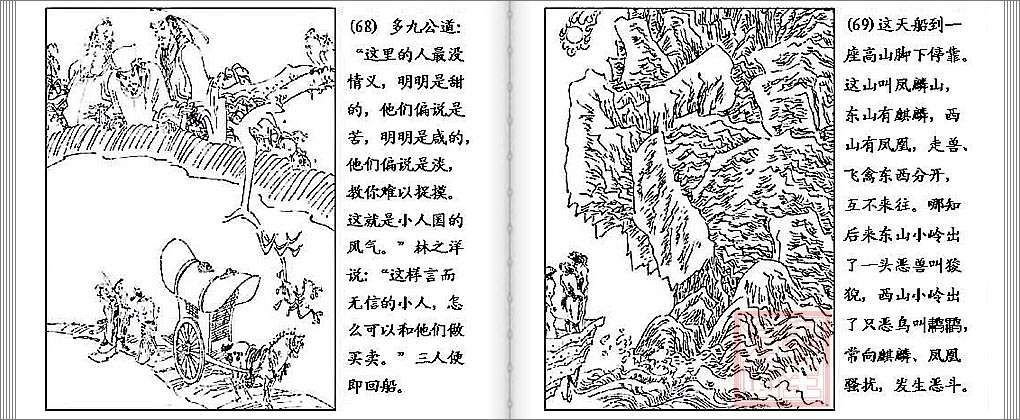 (68) 多九公道：
“这里的人最没
情义，明明是甜
的，他们偏说是
苦，明明是咸的，
他们偏说是淡，
教你难以捉摸。
这就是小人国的
风气。”林之洋
说：“这样言而
无信的小人，怎
么可以和他们做
买卖。”三人便
即回船。
(69)这天船到一
座高山脚下停靠。
这山叫凤麟山，
东山有麒麟，西
山有凤凰，走兽、
飞禽东西分开，
互不来往。哪知
后来东山小岭出
了一头恶兽叫狻
猊，西山小岭出
了只恶鸟叫鹔鹴，
常向麒麟、凤凰
骚扰，发生恶斗。